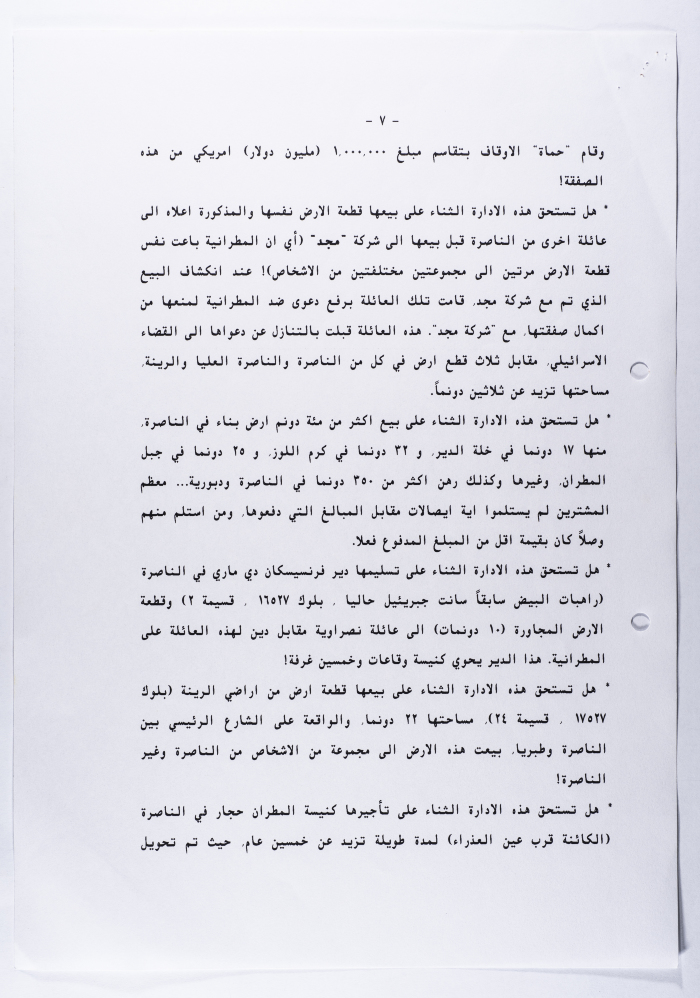 - ٧ -
وقام "حماة" الاوقاف بتقاسم مبلغ ١,٠٠٠,٠٠٠ (مليون دولار) امريكي من هذه
الصفقة!
* هل تستحق هذه الادارة الثناء على بيعها قطعة الارض نفسها والمذكورة اعلاه الى
عائلة اخرى من الناصرة قبل بيعها الى شركة "مجد" (أي ان المطرانية باعت نفس
قطعة الارض مرتين الى مجموعتين مختلفتين من الاشخاص)! عند انكشاف البيع
الذي تم مع شركة مجد, قامت تلك العائلة برفع دعوى ضد المطرانية لمنعها من
اكمال صفقتها, مع "شركة مجد". هذه العائلة قبلت بالتنازل عن دعواها الى القضاء
الاسرائيلي, مقابل ثلاث قطع ارض في كل من الناصرة والناصرة العليا والرينة,
مساحتها تزيد عن ثلاثين دونماً.
* هل تستحق هذه الادارة الثناء على بيع اكثر من مئة دونم ارض بناء في الناصرة,
منها ١٧ دونما في خلة الدير, و ٣٢ دونما في كرم اللوز, و ٢٥ دونما في جبل
المطران, وغيرها وكذلك رهن اكثر من ٣٥٠ دونما في الناصرة ودبورية... معظم
المشترين لم يستلموا اية ايصالات مقابل المبالغ التي دفعوها, ومن استلم منهم
وصلاً كان بقيمة اقل من المبلغ المدفوع فعلا.
* هل تستحق هذه الادارة الثناء على تسليمها دير فرنسيسكان دي ماري في الناصرة
(راهبات البيض سابقاً سانت جبريئيل حاليا , بلوك ١٦٥٢٧ , قسيمة ٢) وقطعة
الارض المجاورة (١٠ دونمات) الى عائلة نصراوية مقابل دين لهذه العائلة على
المطرانية. هذا الدير يحوي كنيسة وقاعات وخمسين غرفة!
* هل تستحق هذه الادارة الثناء على بيعها قطعة ارض من اراضي الرينة (بلوك
١٧٥٢٧ , قسيمة ٢٤), مساحتها ٢٢ دونما, والواقعة على الشارع الرئيسي بين
الناصرة وطبريا, بيعت هذه الارض الى مجموعة من الاشخاص من الناصرة وغير
الناصرة!
* هل تستحق هذه الادارة الثناء على تأجيرها كنيسة المطران حجار في الناصرة
(الكائنة قرب عين العذراء) لمدة طويلة تزيد عن خمسين عام, حيث تم تحويل